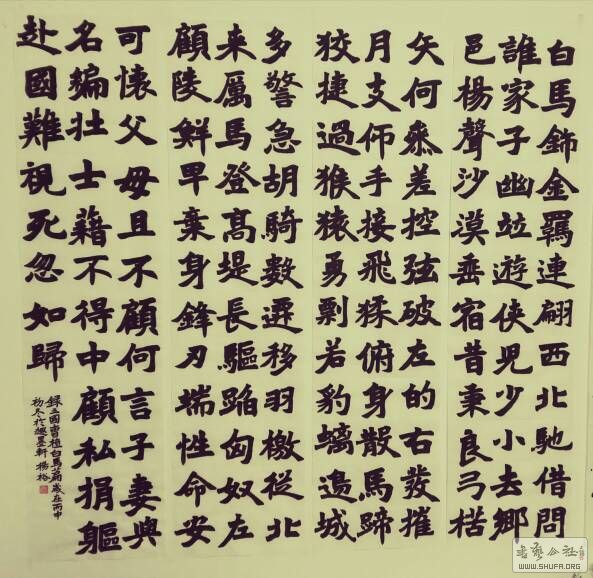 白馬飾金羈連翩西北馳借問
誰家子幽竝遊俠児少小去鄉
邑楊聲沙漠垂宿昔秉良弓楛
矢何参差控弦破左的右發摧
月支仰手接飛猱俯身散馬蹄
狡捷過猴猿勇剽若豹螭邊城
多警急胡騎數遷移羽檄從北
来厲馬登高堤長驅蹈匈奴左
顧陵鮮卑棄身鋒刃端性命安
可懷父母且不顧何言子妻與
名編壯士籍不得中顧私捐軀
赴國難視死忽如歸
錄三國曹植白馬篇歲在丙申
初冬於墨軒 楊
書藝公社
WWW.SHUFA.ORG